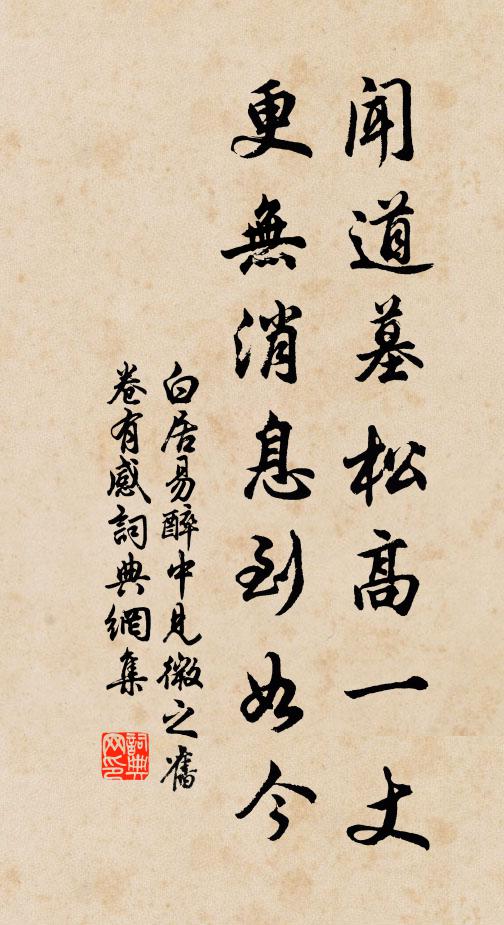 聞道墓松高一丈
更無消息到如今
白居易醉中見微之舊
卷有感詞典網集
詞典
网印